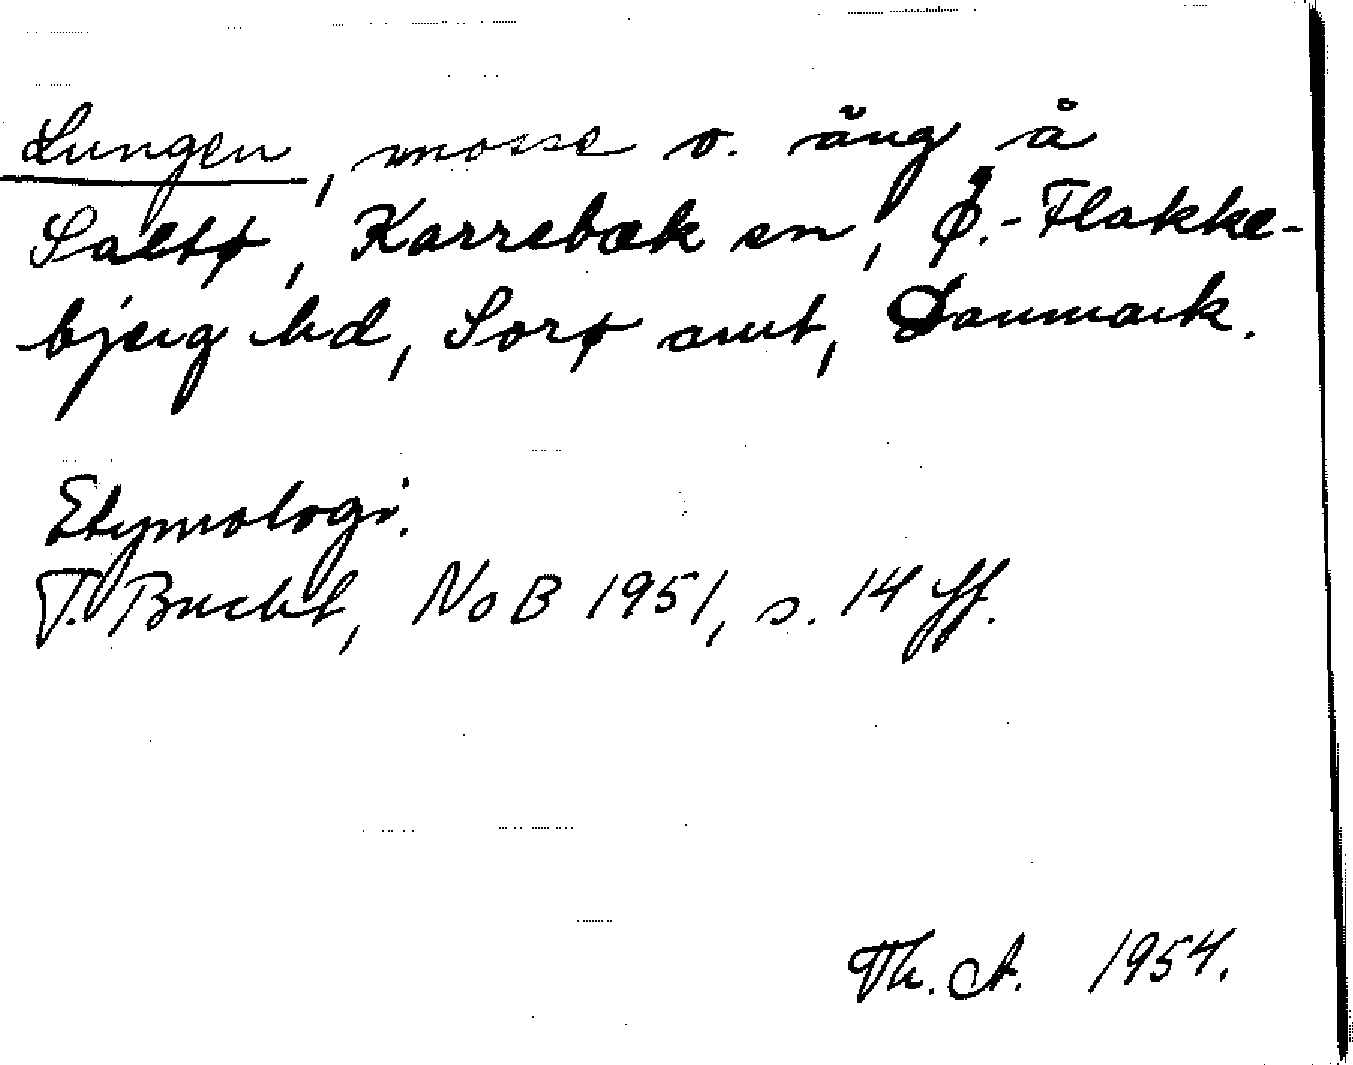 Lungen, mosse o. äng å
Saltø, Karrebæk sn, Ø.-Flakke-
bjerg hd, Sorø amt, Danmark.
Etymologi.
T. Bucht, NoB 1951, s. 14 ff.
Th. A. 1954.